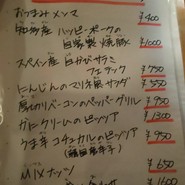 おつまみメンマ ¥400
知多産 ハッピーポークの
自家製 焼豚 ¥1000
スペイン産 白かびサラミ
フエテック ¥750
にんじんのマリネ風サラダ ¥550
厚切りベーコンのペッパーグリル ¥950
かにクリームのピッツァ ¥1300
うま辛コチュカルのピッツァ ¥950
MIXナッツ ¥650
¥1600